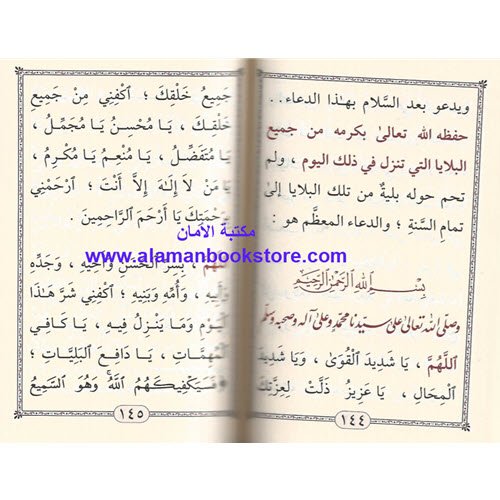 ويدعو بعد السَّلام بهٰذا الدعاء..
حفظه الله تعالىٰ بكرمه من جميع
البلايا التي تنزل في ذلك اليوم ، ولم
تحم حوله بليةٌ من تلك البلايا إلىٰ
تمام السَّنةِ ؛ والدعاء المعظَّم هو :
بِسْمِ اللهِ الرَّحْمٰنِ الرَّحِيمِ
وصلى الله تعالى على سيّدنا محمّد وعلى آله وصحبه وسلّم
اَللَّهُمَّ ، يَا شَدِيدَ الْقُوَىٰ ، وَيَا شَدِيدَ
الْمِحَالِ ، يَا عَزِيزُ ذَلَّتْ لِعِزَّتِكَ
١٤٤
جَمِيعُ خَلْقِكَ ؛ اكْفِنِي مِنْ جَمِيعِ
خَلْقِكَ ، يَا مُحْسِنُ يَا مُجَمِّلُ ،
يَا مُتَفَضِّلُ ، يَا مُنْعِمُ يَا مُكْرِمُ ،
يَا مَنْ لَا إِلَـٰهَ إِلَّا أَنْتَ ؛ اِرْحَمْنِي
بِرَحْمَتِكَ يَا أَرْحَمَ الرَّاحِمِينَ .
مكتبة الأمان
www.alamanbookstore.com
اَللَّهُمَّ ، بِسِرِّ الْحَسَنِ وَأَخِيهِ ، وَجَدِّهِ
وَأَبِيهِ ، وَأُمِّهِ وَبَنِيهِ ؛ اكْفِنِي شَرَّ هَـٰذَا
الْيَوْمِ وَمَا يَنْزِلُ فِيهِ ، يَا كَافِي
الْمُهِمَّاتِ ، يَا دَافِعَ الْبَلِيَّاتِ ؛
﴿ فَسَيَكْفِيكَهُمُ اللَّهُ وَهُوَ السَّمِيعُ
١٤٥